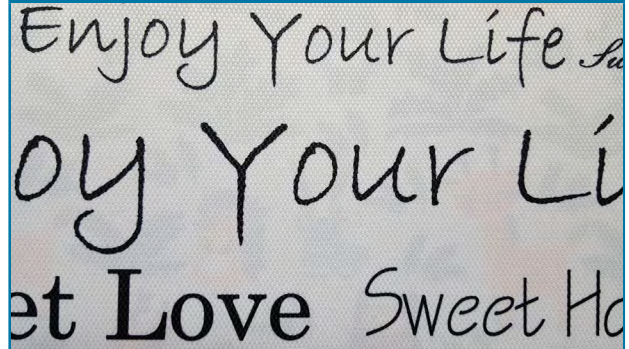 Enjoy Your Life Su
oy Your Li
et Love Sweet Ho